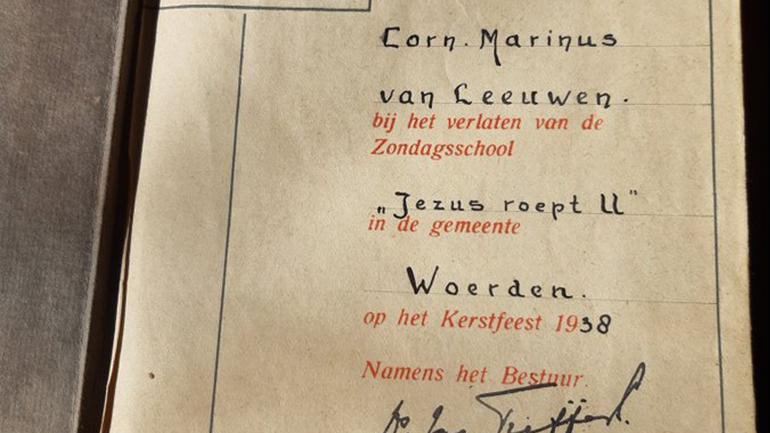 Corn. Marinus
van Leeuwen.
bij het verlaten van de
Zondagsschool
„Jezus roept U”
in de gemeente
Woerden.
op het Kerstfeest 1938
Namens het Bestuur.